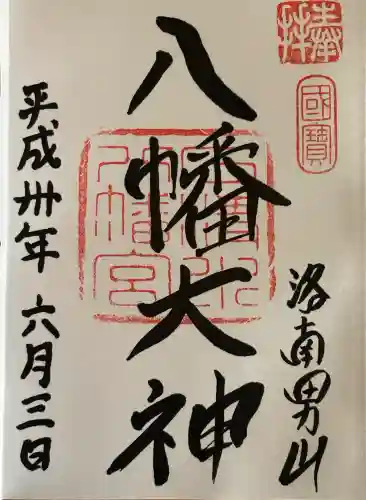 奉拝
國寶
洛南男山
八幡大神
石清水八幡宮
平成卅年 六月三日